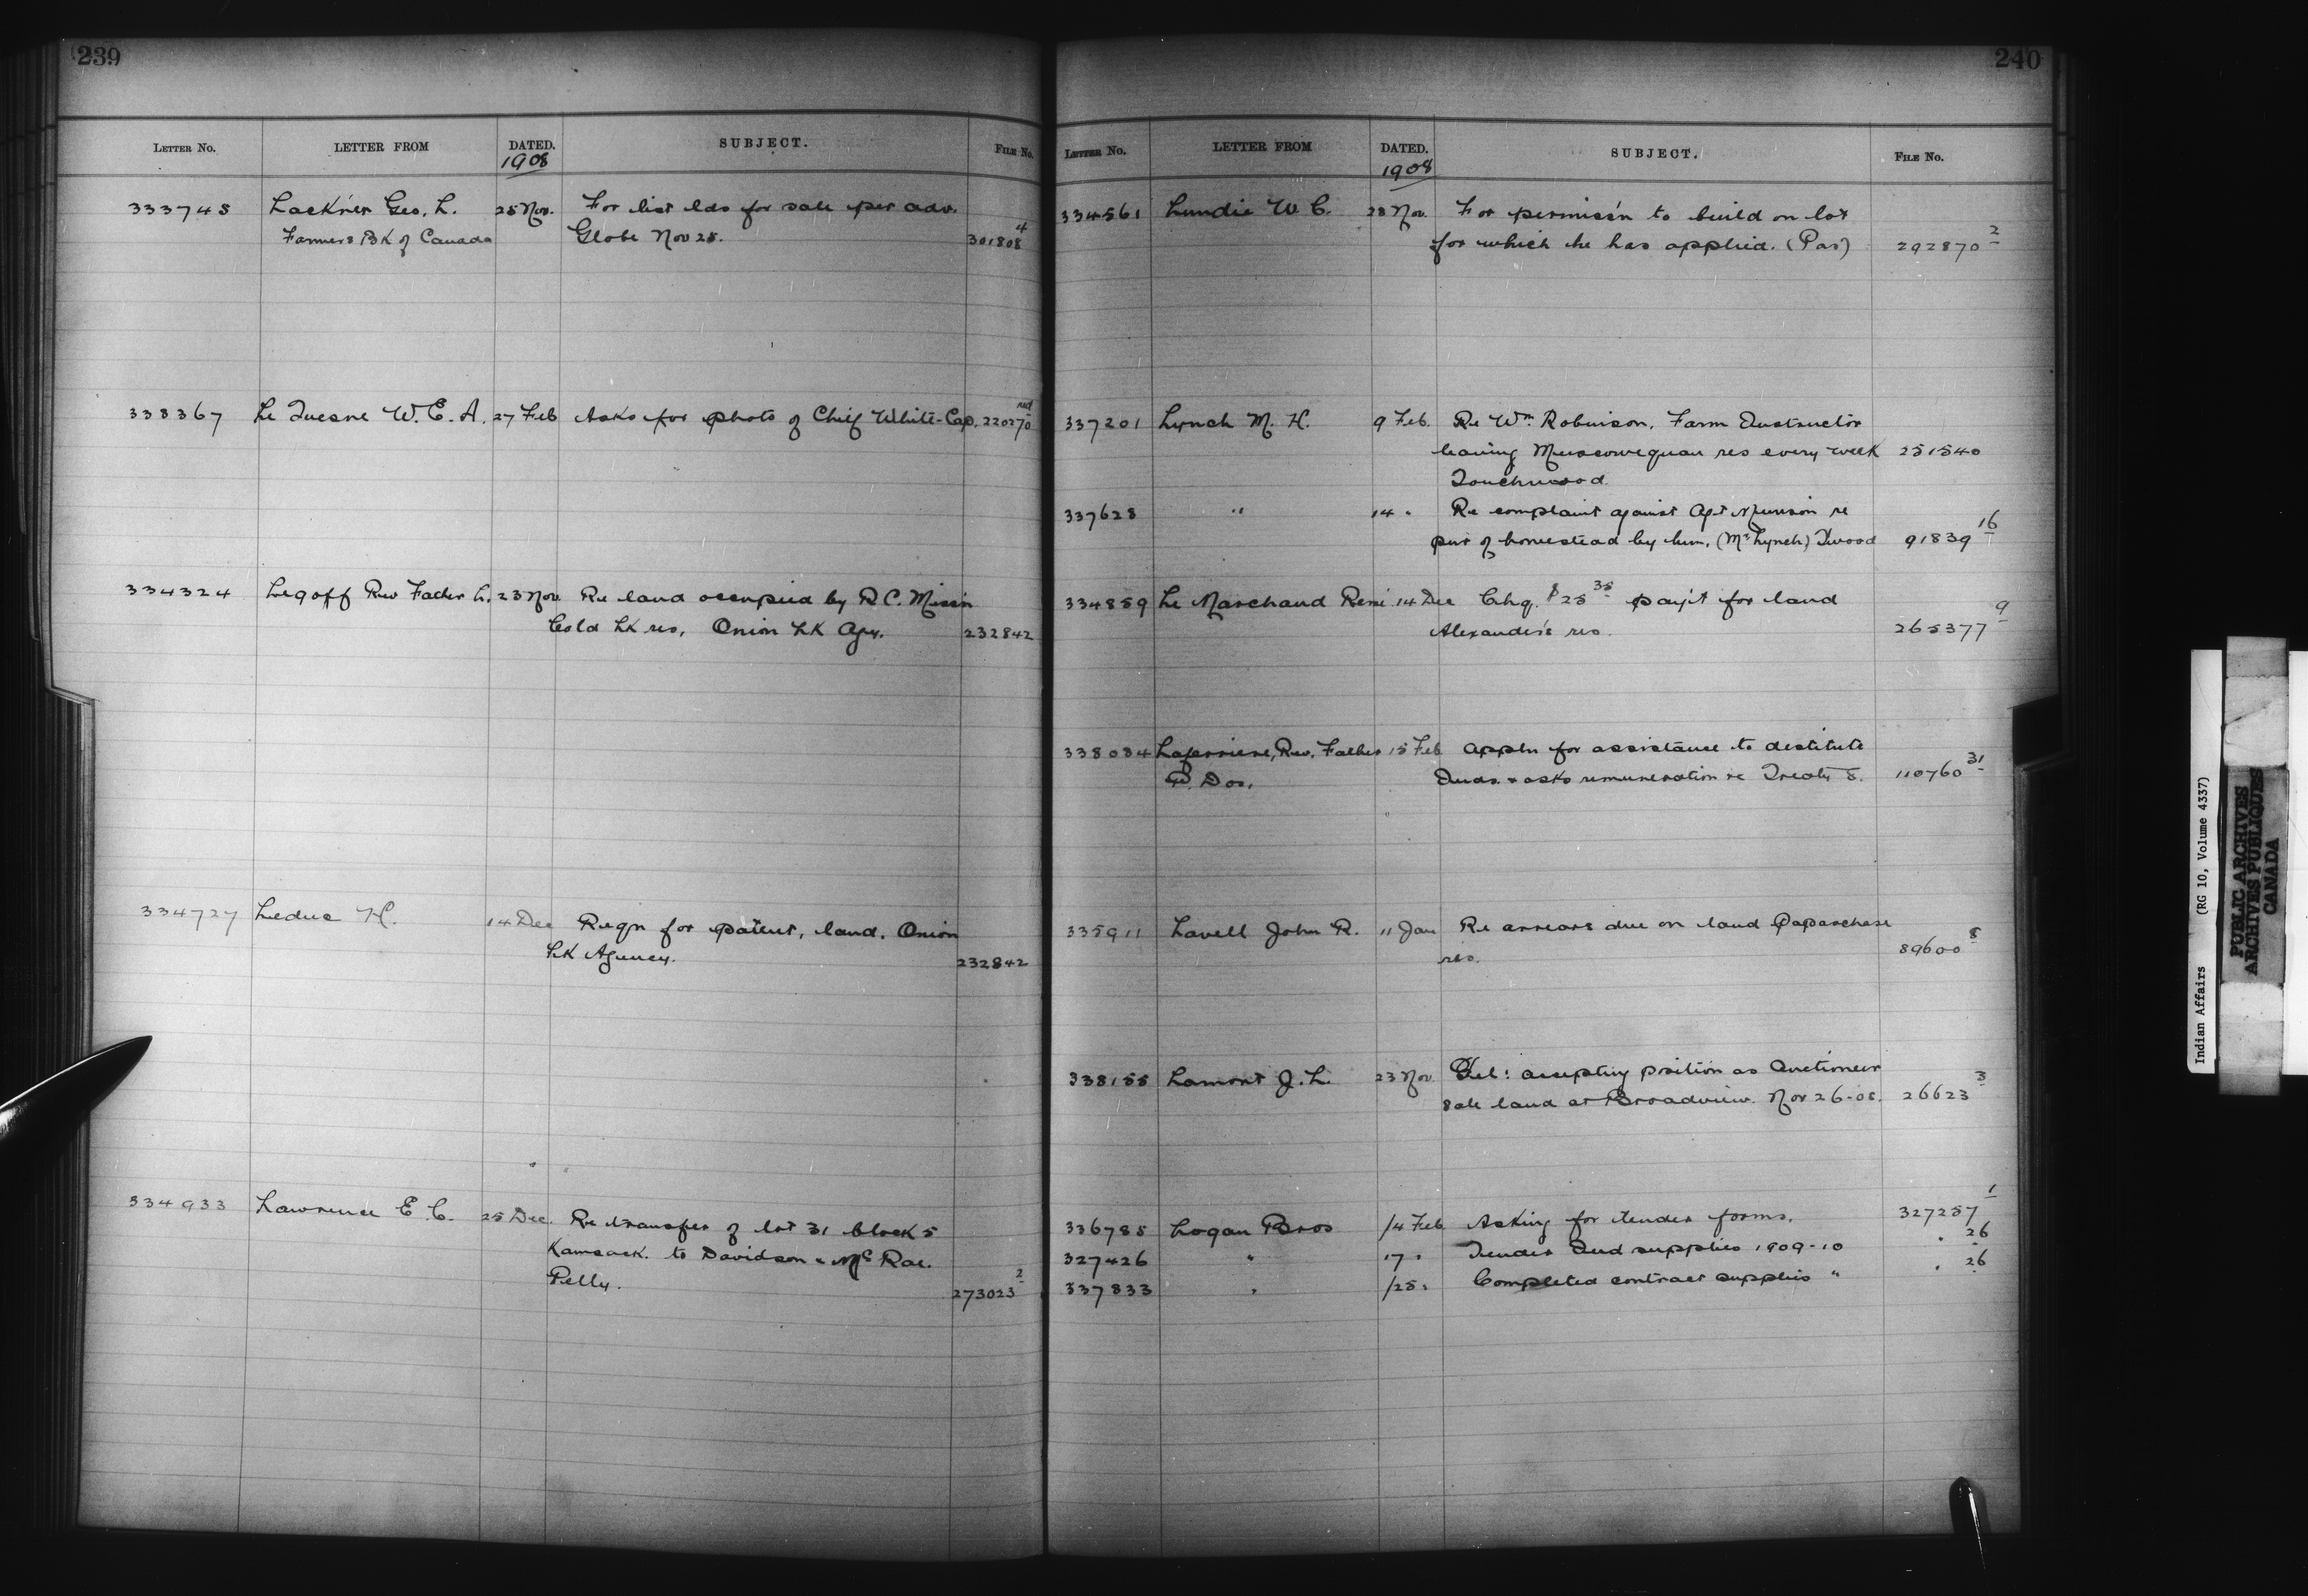 239
LETTER No. LETTER FROM DATED. SUBJECT. FILE No.
1908
333745 Lackner Geo. L. 25 Nov. For list lds for sale per adv.
Farmers Bk of Canada Globe Nov 25. 301808 4
338367 Le Quesne W. E. A. 27 Feb Asks for photo of Chief White-Cap. 220270 red
334324 Legoff Rev Father L. 23 Nov Re land occupied by R.C. Miss'n
Cold Lk res, Onion Lk Agy. 232842
334727 Leduc H. 14 Dec Reqn for patent, land. Onion
Lk Agency. 232842
334933 Lawrence E. C. 25 Dec. Re transfer of lot 31 block 5
Kamsack. to Davidson & McRae.
Pelly. 273023 2
240
LETTER No. LETTER FROM DATED. SUBJECT. FILE No.
1908
334561 Lundie W. C. 28 Nov. For permiss'n to build on lot
for which he has applied. (Pas) 292870 2
337201 Lynch M. H. 9 Feb. Re Wm. Robinson, Farm Instructor
leaving Muscowequan res every week 251540
Touchwood.
337628 " 14 " Re complaint against Agt Murison re
pur of homestead by him. (Mr Lynch) Twood 91839 16
334859 Le Marchand René 14 Dec Chq. $25 35 paym't for land
Alexander's res. 265377 9
338034 Laferriere, Rev. Father 15 Feb Appln for assistance to destitute
Inds. & asks remuneration re Treaty 8. 110760 31
335911 Lavell John R. 11 Jan Re arrears due on land Papaschase
res. 89600 8
338155 Lamont J. L. 23 Nov. Tel: accepting position as Auctioneer
sale land at Broadview. Nov 26-08. 26623 3
336785 Logan Bros 14 Feb Asking for tender forms. 327257 1
327426 " 17 " Tender Ind supplies 1909-10 " 26
337833 " 25 " Completed contract supplies " " 26
Indian Affairs (RG 10, Volume 4337)
PUBLIC ARCHIVES
ARCHIVES PUBLIQUES
CANADA